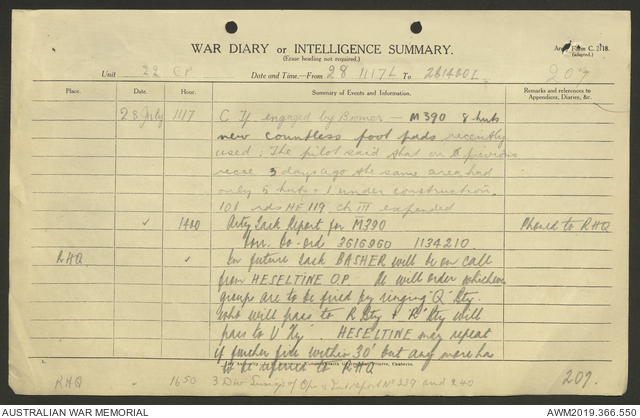 WAR DIARY or INTELLIGENCE SUMMARY.
(Erase heading not required.)
Army Form C. 2118.
(adapted.)
Unit 22 CP Date and Time—From 28 1117L To 281400L 207
Place. Date. Hour. Summary of Events and Information. Remarks and references to Appendices, Diaries, &c.
28 July 1117 C Tp engaged by Boomer — M390 8 huts
new countless foot pads recently
used: The pilot said that on previous
recce 3 days ago the same area had
only 5 huts + 1 under construction.
106 rds HE 119 ch III expended
✓ 1400 Arty Tack Report for M390 Phoned to RHQ
Co-ord 3616960 1134210
RHQ ✓ In future Tack BASHER will be on call
from HESELTINE O.P. He will order whichever
groups are to be fired by ringing "Q" Bty.
who will pass to R Bty & "R" Bty will
pass to U HESELTINE may repeat
if further fire within 30' but any more has
to be referred to RHQ
RHQ 1650 3 Div of Op & No 239 and 240 207.
AUSTRALIAN WAR MEMORIAL AWM2019.366.550